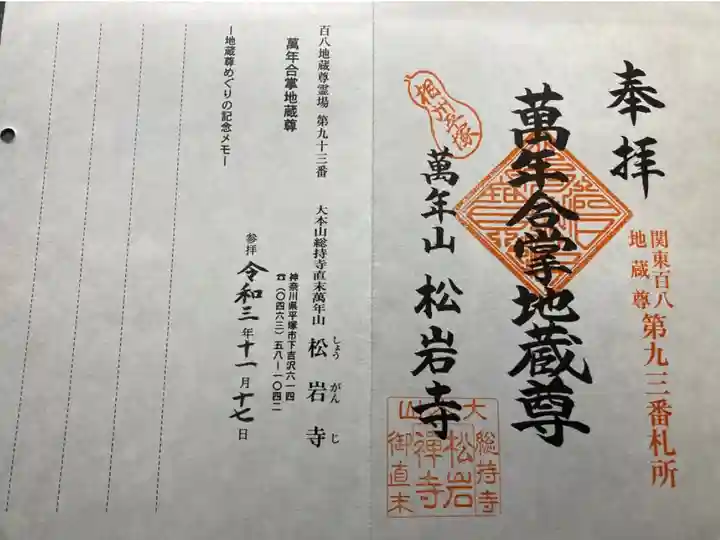 奉拝
関東百八
地蔵尊
第九三番札所
萬年合掌地蔵尊
相州平塚
萬年山 松岩寺
大
総持寺
松岩
禅寺
山
御直末
百八地蔵尊霊場 第九十三番 大本山総持寺直末萬年山 松岩寺
しょう がん じ
萬年合掌地蔵尊
神奈川県平塚市下吉沢六一四
☎(〇四六三)五八ー一〇四二
ー地蔵尊めぐりの記念メモー
参拝 令和三年十一月十七日